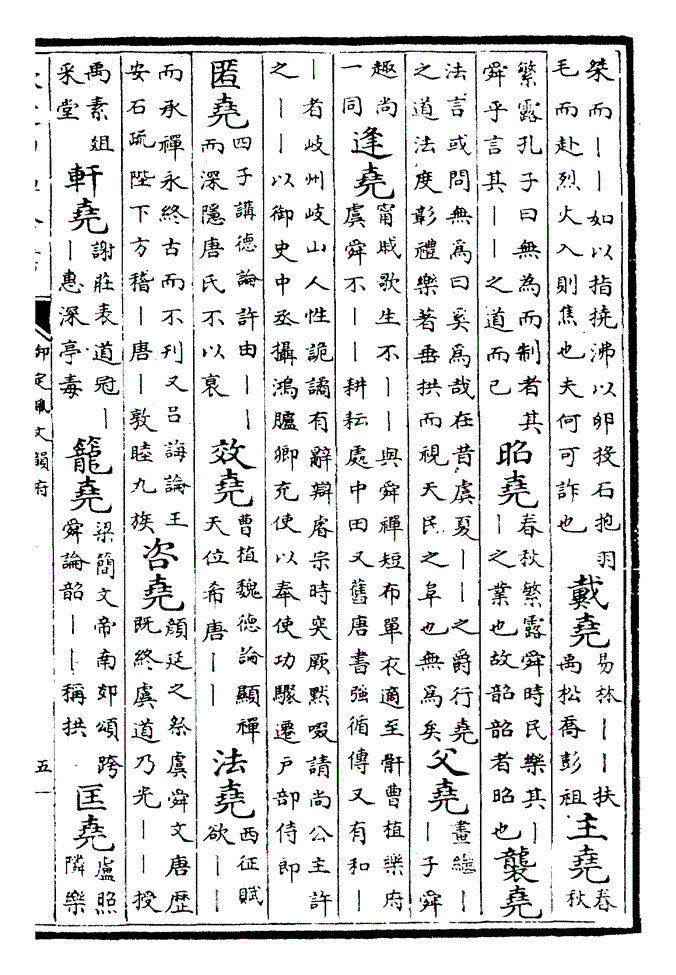 桀而｜｜如以指撓沸以卵投石抱羽
毛而赴烈火入則焦也夫何可詐也
戴堯
易林｜｜扶
禹松喬彭祖
主堯
春
秋
繁露孔子曰無為而制者其
舜乎言其｜｜之道而已
昭堯
春秋繁露舜時民樂其｜
｜之業也故韶韶者昭也
襲堯
法言或問無為曰奚為哉在昔虞夏｜｜之爵行堯
之道法度彰禮樂著垂拱而視天民之阜也無為矣
父堯
畫繼｜
｜子舜
趣尚
一同
逢堯
甯戚歌生不｜｜與舜禪短布單衣適至骭曹植樂府
虞舜不｜｜耕耘處中田又舊唐書強循傳又有和｜
｜者岐州岐山人性詭譎有辭辯睿宗時突厥默啜請尚公主許
之｜｜以御史中丞攝鴻臚卿充使以奉使功驟遷戶部侍郎
匿堯
四子講德論許由｜｜
而深隱唐氏不以衰
效堯
曹植魏德論顯禪
天位希唐｜｜
法堯
西征賦
欲｜｜
而承禪永終古而不刋又呂誨論王
安石疏陛下方稽｜唐｜敦睦九族
咨堯
顔延之祭虞舜文唐歷
既終虞道乃光｜｜授
禹素俎
采堂
軒堯
謝莊表道冠｜
｜惠深亭毒
籠堯
梁簡文帝南郊頌跨
舜論韶｜｜稱拱
匡堯
盧照
隣樂
御定佩文韻府
五一